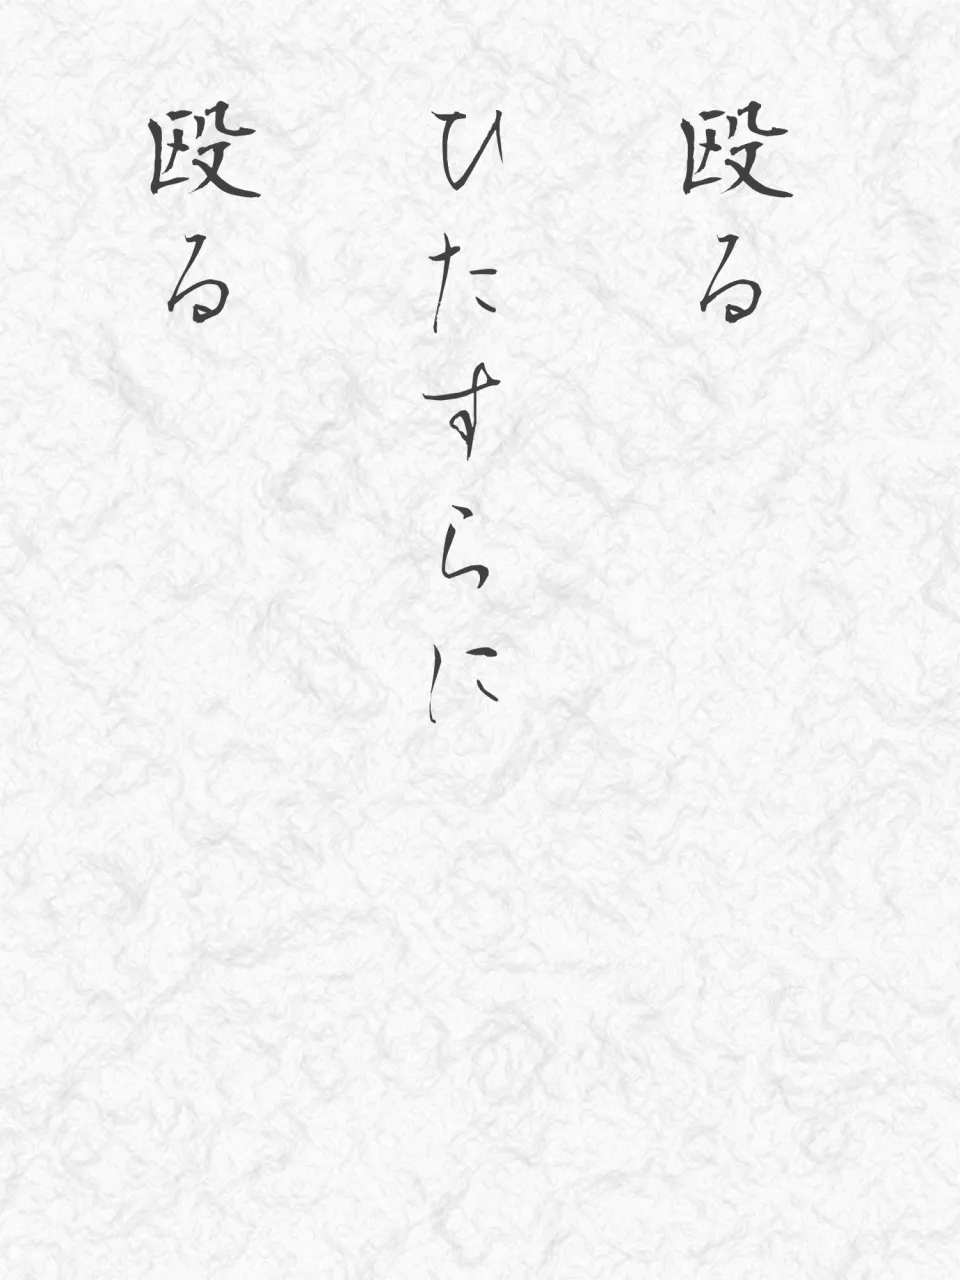 殴る
ひたすらに
殴る